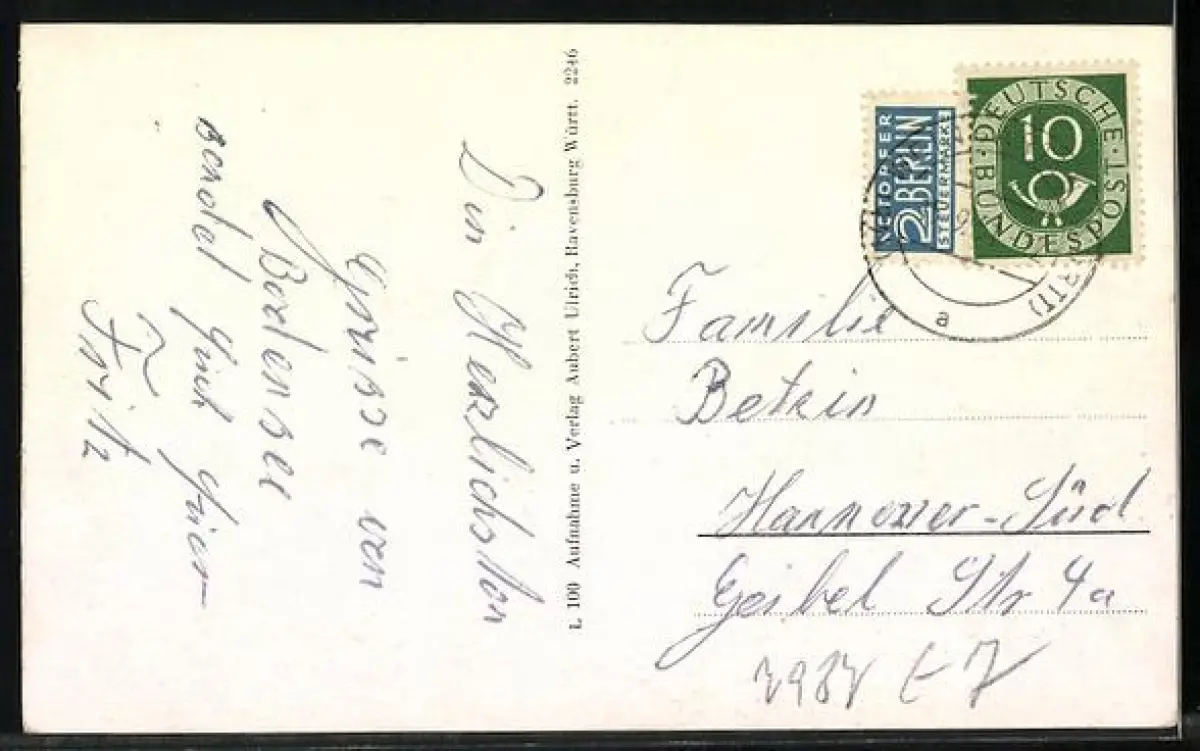 Die Herzlichsten
Grüsse von
Bodensee
sendet Euch
Fritz
L 100 Aufnahme u. Verlag Aubert Ulrich, Ravensburg Württ. 2246
NOTOPFER
2 BERLIN
STEUERMARKE
DEUTSCHE BUNDESPOST
10
a
Familie
Betzin
Hannover-Süd
Geibel Str 4a